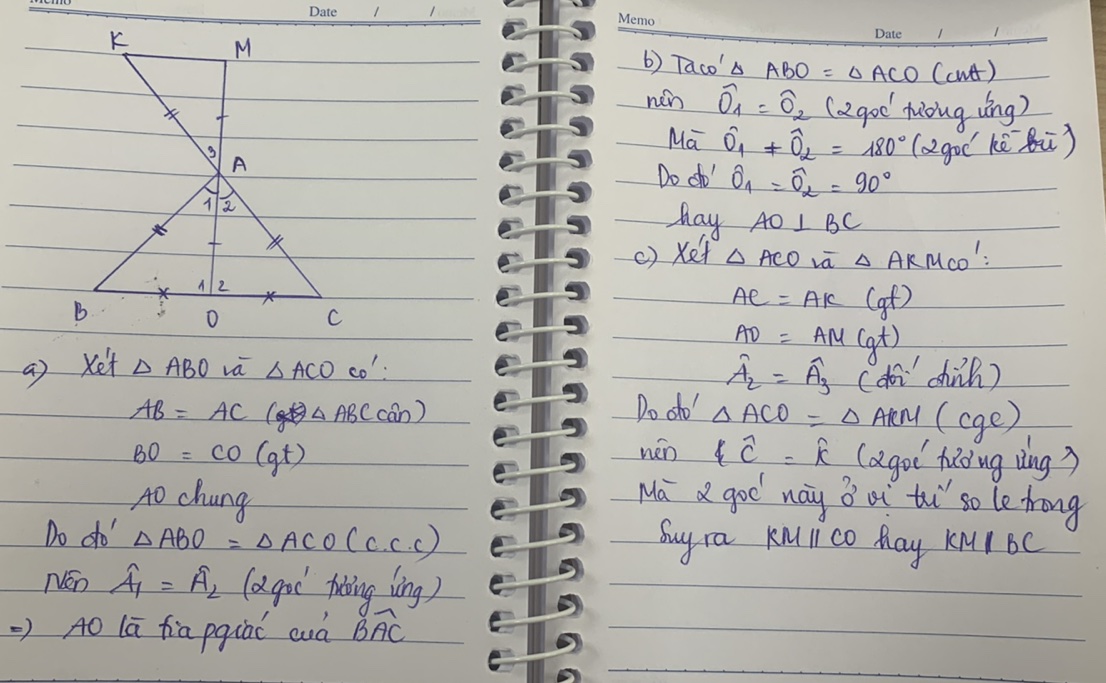 Memo
Date / /
K M
3
A
1 2
1 2
B O C
a) Xét △ ABO và △ ACO có:
AB = AC (△ ABC cân)
BO = CO (gt)
AO chung
Do đó △ ABO = △ ACO (c.c.c)
Nên Â₁ = Â₂ (2 góc tương ứng)
=) AO là tia pgiác của BÂC
Memo
Date / /
b) Ta có △ ABO = △ ACO (cmt)
nên Ô₁ = Ô₂ (2 góc tương ứng)
Mà Ô₁ + Ô₂ = 180° (2 góc kề bù)
Do đó Ô₁ = Ô₂ = 90°
hay AO ⊥ BC
c) Xét △ ACO và △ AKM có:
AC = AK (gt)
AO = AM (gt)
Â₂ = Â₃ (đối đỉnh)
Do đó △ ACO = △ AKM (cgc)
nên Ĉ = K̂ (2 góc tương ứng)
Mà 2 góc này ở vị trí so le trong
Suy ra KM // CO hay KM // BC